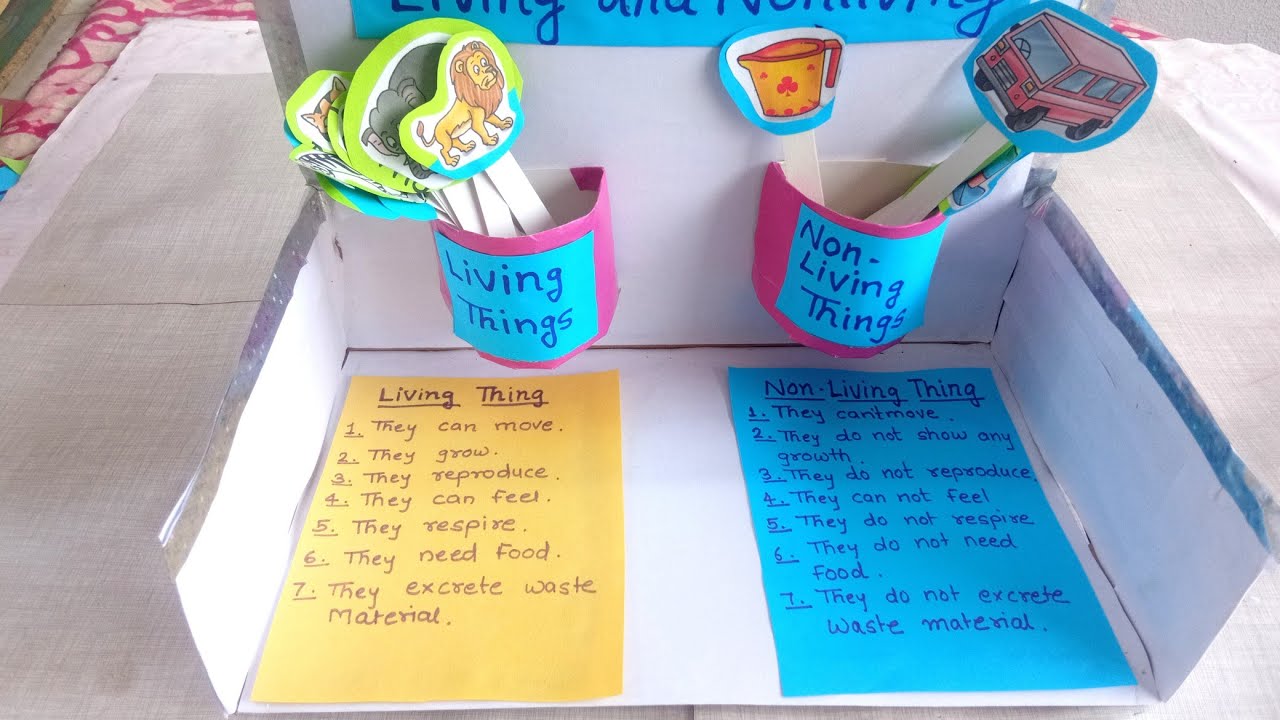 Living and Nonliving
Living
Things
Non-
Living
Things
Living Thing
1. They can move.
2. They grow.
3. They reproduce.
4. They can feel.
5. They respire.
6. They need food.
7. They excrete waste
Material.
Non-Living Thing
1. They can't move.
2. They do not show any
growth.
3. They do not reproduce.
4. They can not feel
5. They do not respire
6. They do not need
food.
7. They do not excrete
waste material.